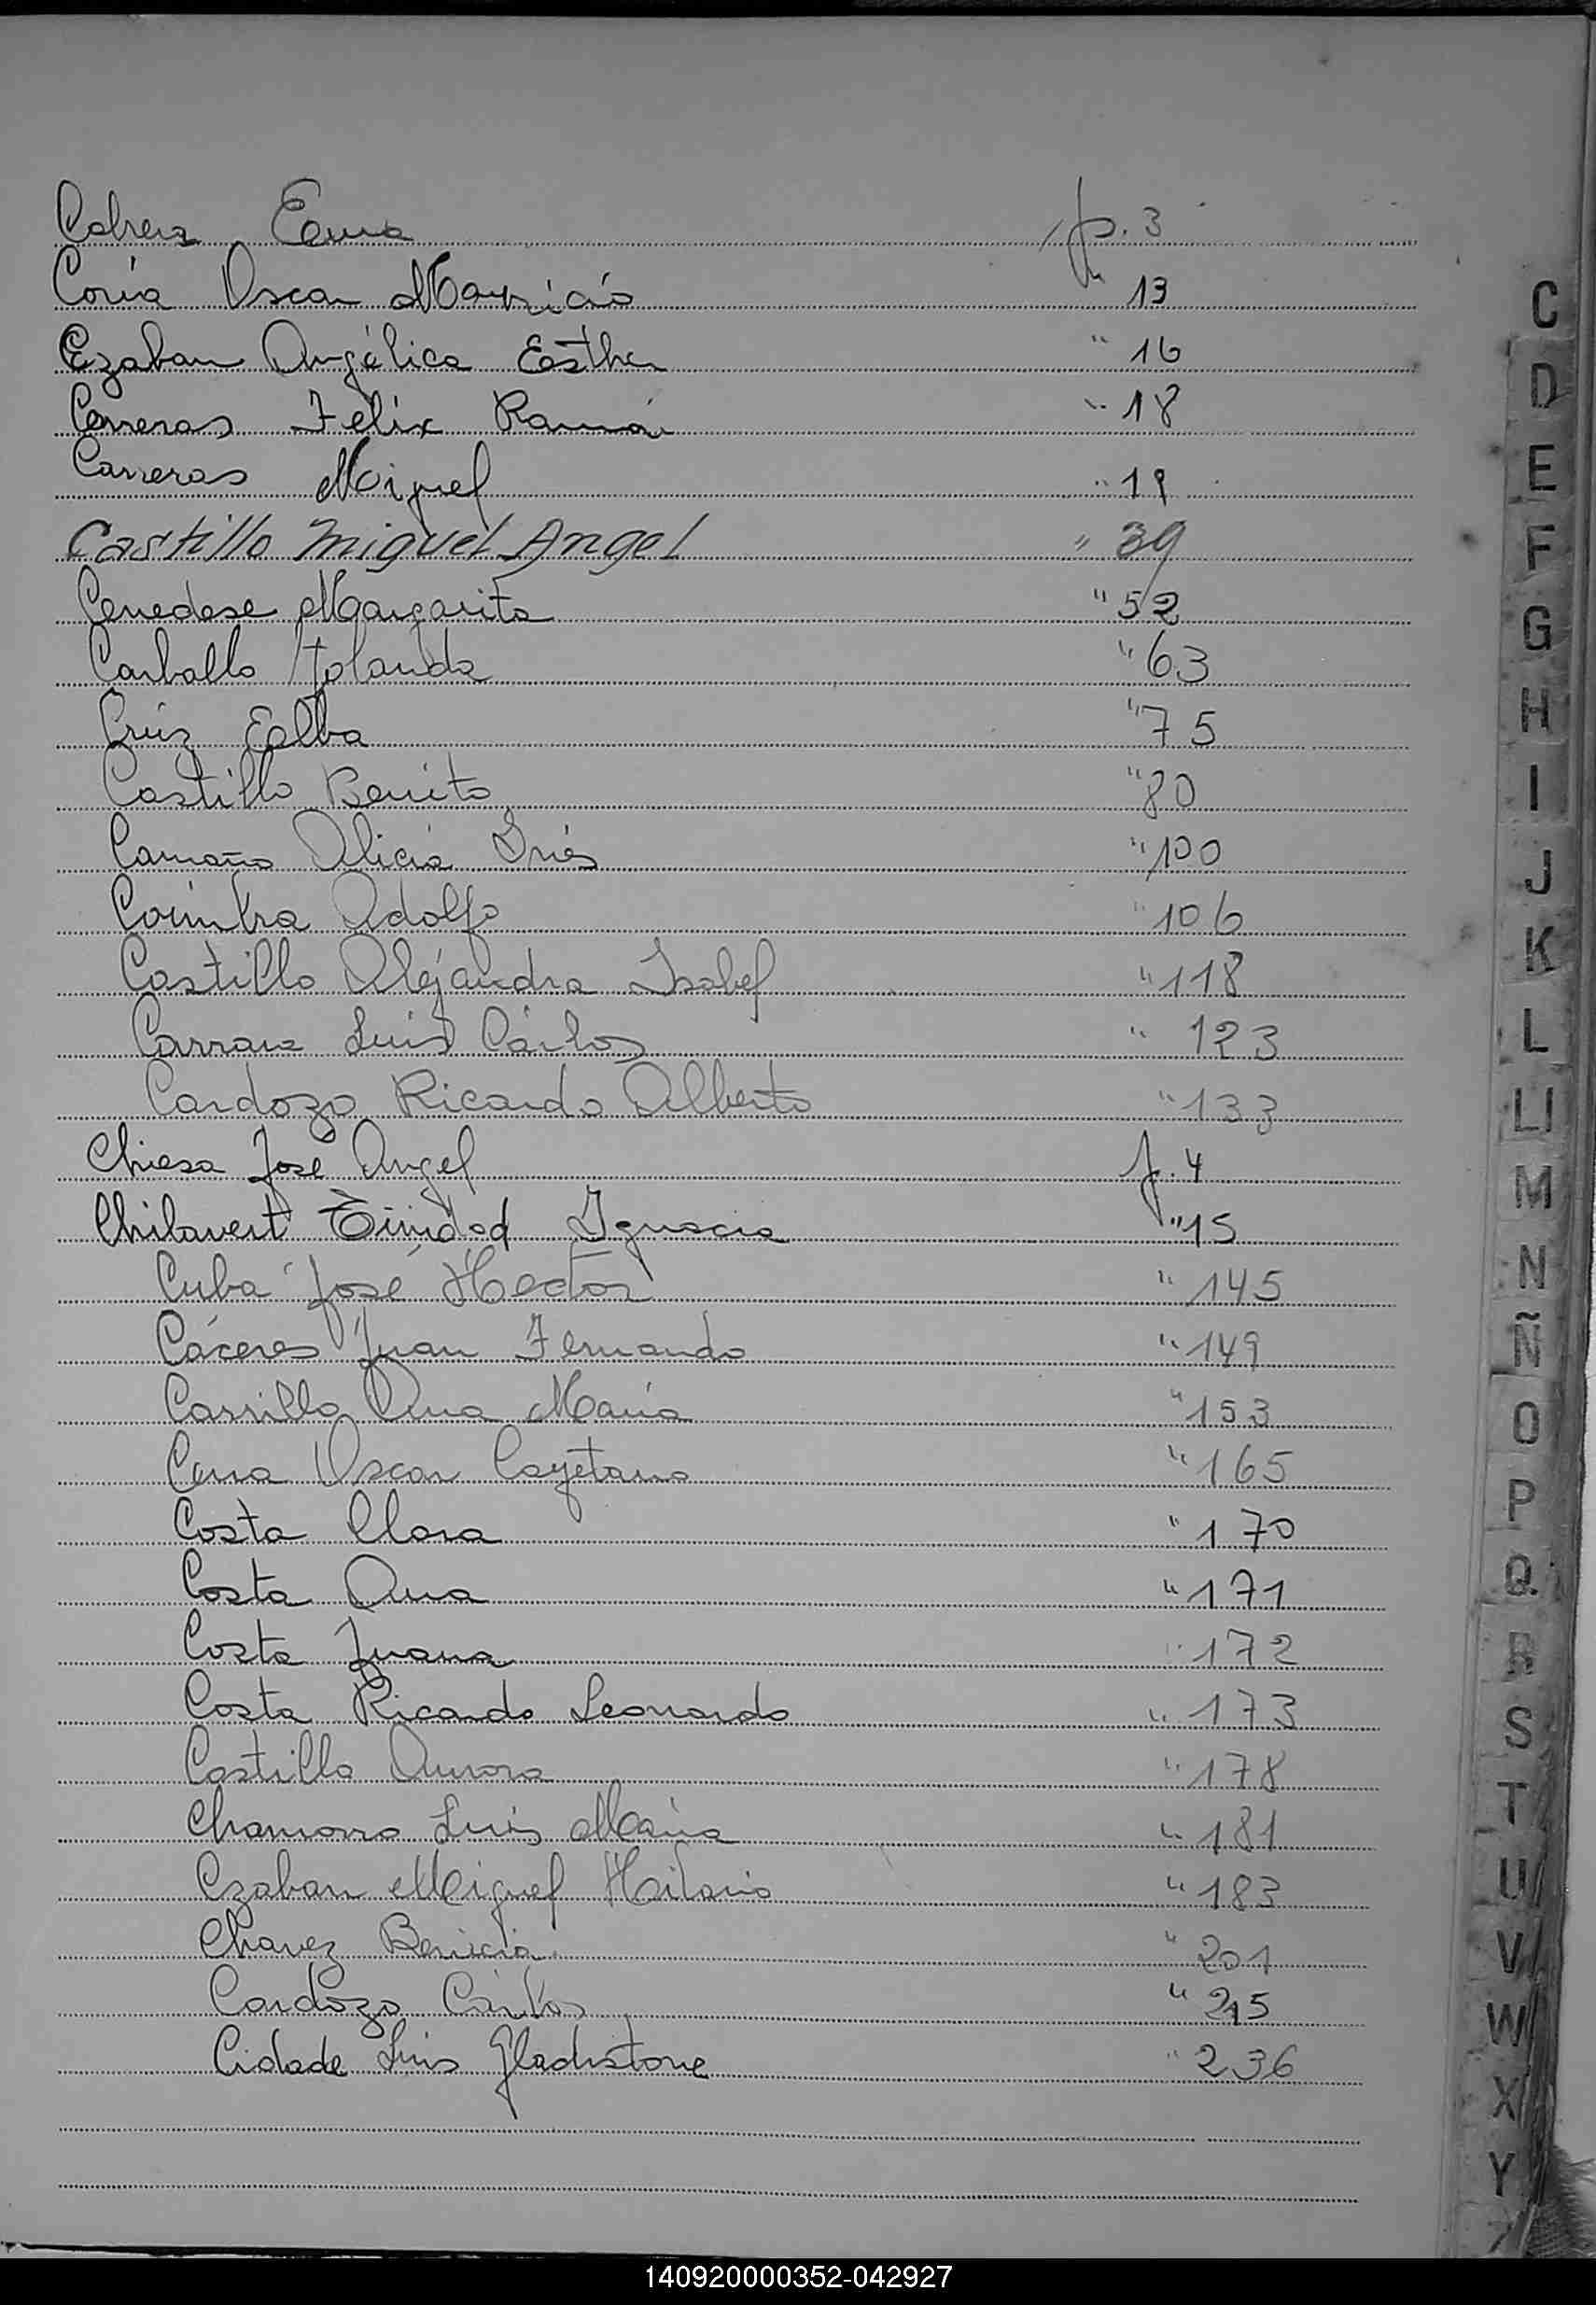 Cabrera Ema p. 3
Coria Oscar Mauricio " 13
Czaban Angélica Esther " 16
Carreras Felix Ramón " 18
Carreras Miguel " 19
Castillo Miguel Angel " 39
Cenedese Margarita " 52
Carballo Yolanda " 63
Cruz Elba " 75
Castillo Benito " 80
Camaño Alicia Inés " 100
Coimbra Adolfo " 106
Castillo Alejandra Isabel " 118
Carranz Luis Carlos " 123
Cardozo Ricardo Alberto " 133
Chiesa José Angel f. 4
Chilavert Trinidad Ignacia " 15
Cuba José Hector " 145
Cáceres Juan Fernando " 149
Carrillo Ana María " 153
Cerra Oscar Cayetano " 165
Costa Clara " 170
Costa Ana " 171
Costa Juana " 172
Costa Ricardo Leonardo " 173
Castillo Aurora " 178
Chamorro Luis María " 181
Czaban Miguel Hilario " 183
Chavez Benicia " 201
Cardozo Carlos " 215
Cidade Luis Gladistone " 236
C
D
E
F
G
H
I
J
K
L
Ll
M
N
Ñ
O
P
Q
R
S
T
U
V
W
X
Y
Z
140920000352-042927